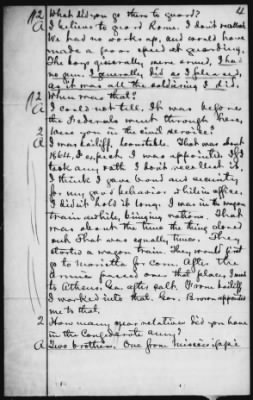 4
Q What did you go there to guard?
A I believe to guard Rome. I don't recollect
We had no works up, and would have
made a poor speed at guarding.
The boys generally were armed, I had
no gun. I generally did as I pleased,
as it was all the soldiering I did.
Q When was that?
A I could not tell. It was before
the Federals went through here,
Q Were you in the civil service?
A I was bailiff, Constable. That was about
1864, I expect I was appointed. If I
took any oath I don't recollect it.
I think I gave bond and security
for my good behavior while in office,
I didn't hold it long. I was in the wagon
train awhile, bringing rations. That
was about the time the thing closed
out. That was equally times. They
started a wagon train. They would first
go to Marietta for corn. After the
armies passed over that place, I went
to Athens Ga. after salt. From bailiff
I worked into that. Gov. Brown appointed
me to that.
Q How many near relatives did you have
in the Confederate army?
A Two brothers. One from Mississippi